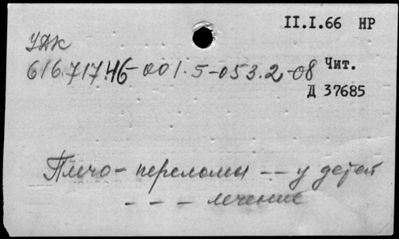 II.I.66 НР
УДК
616.717.46-001.5-053.2-08 Чит.
Д 37685
Плечо - переломы -- у детей
- - - лечение